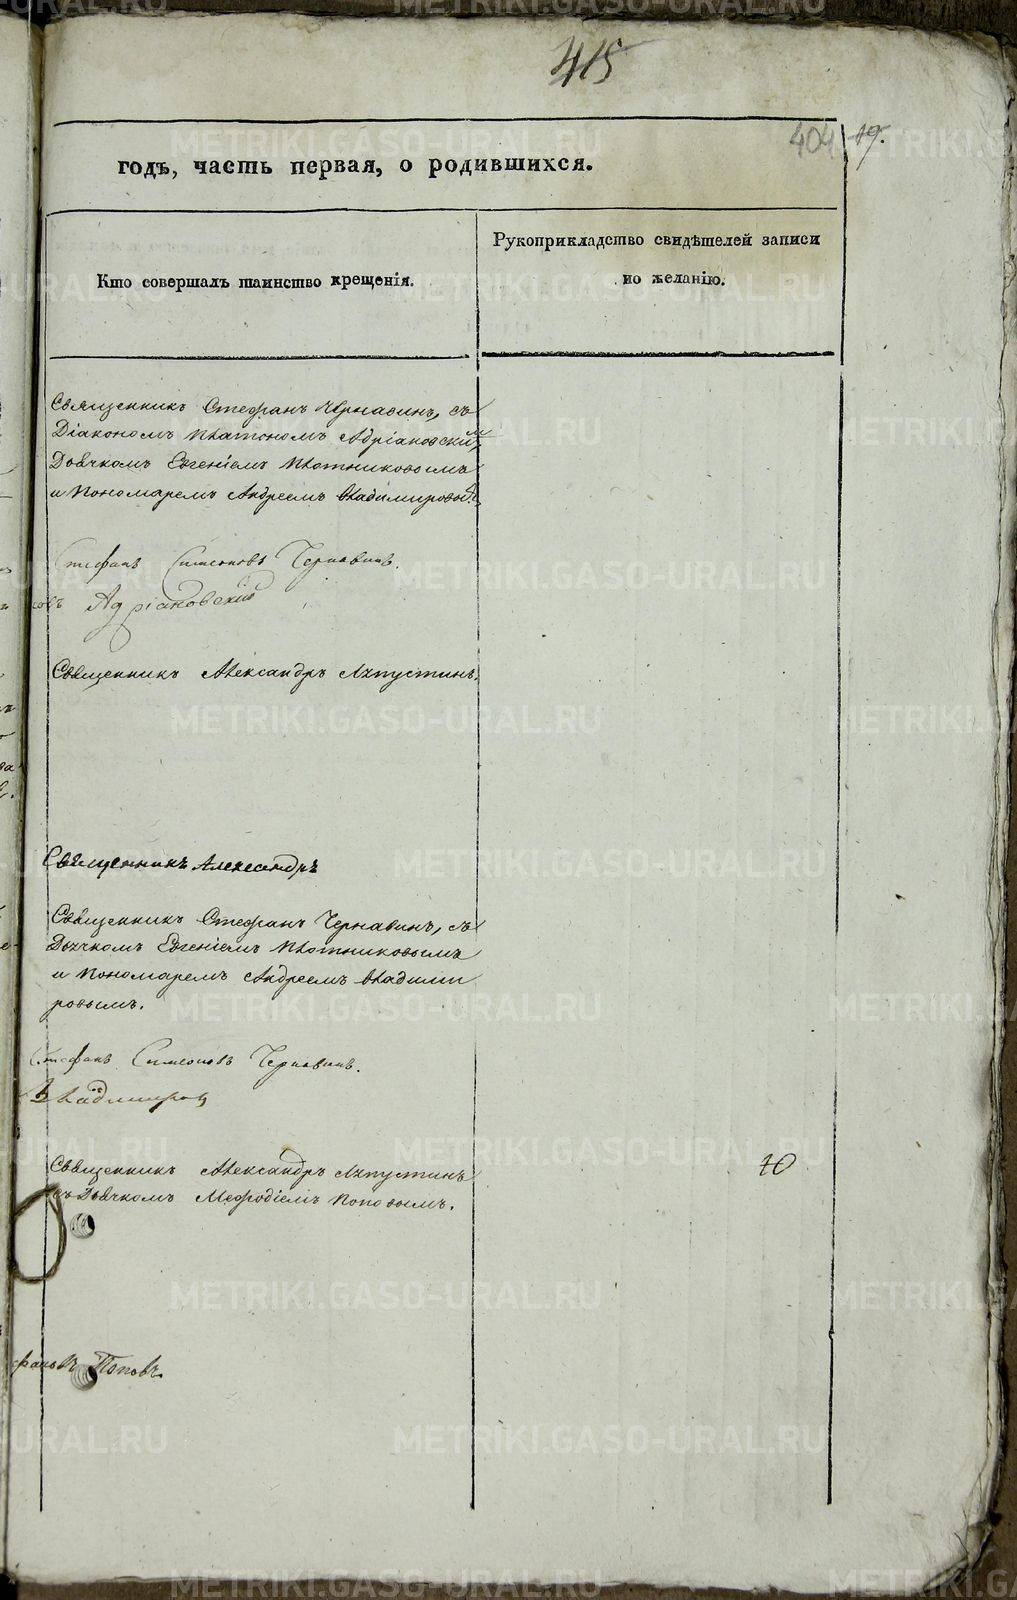 415
404 19.
годъ, часть первая, о родившихся.
Кто совершалъ таинство крещенія.
Рукоприкладство свидѣтелей записи
по желанію.
Священникъ Стефанъ Чернавинъ, съ
Діакономъ Платономъ Адріановскимъ
Дьячкомъ Евгеніемъ Плотниковымъ
и Пономаремъ Андреемъ Владимировы
Стефанъ Симеоновъ Чернавинъ.
Адріановскій
Священникъ Александръ Ляпустинъ.
Священникъ Александръ
Священникъ Стефанъ Чернавинъ, съ
Дьячкомъ Евгеніемъ Плотниковымъ
и Пономаремъ Андреемъ Владими
ровымъ.
Стефанъ Симеоновъ Чернавинъ.
Владимиров
Священникъ Александръ Ляпустинъ
съ Дьячкомъ Мефодіемъ Поповымъ.
10
Поповъ.
METRIKI.GASO-URAL.RU